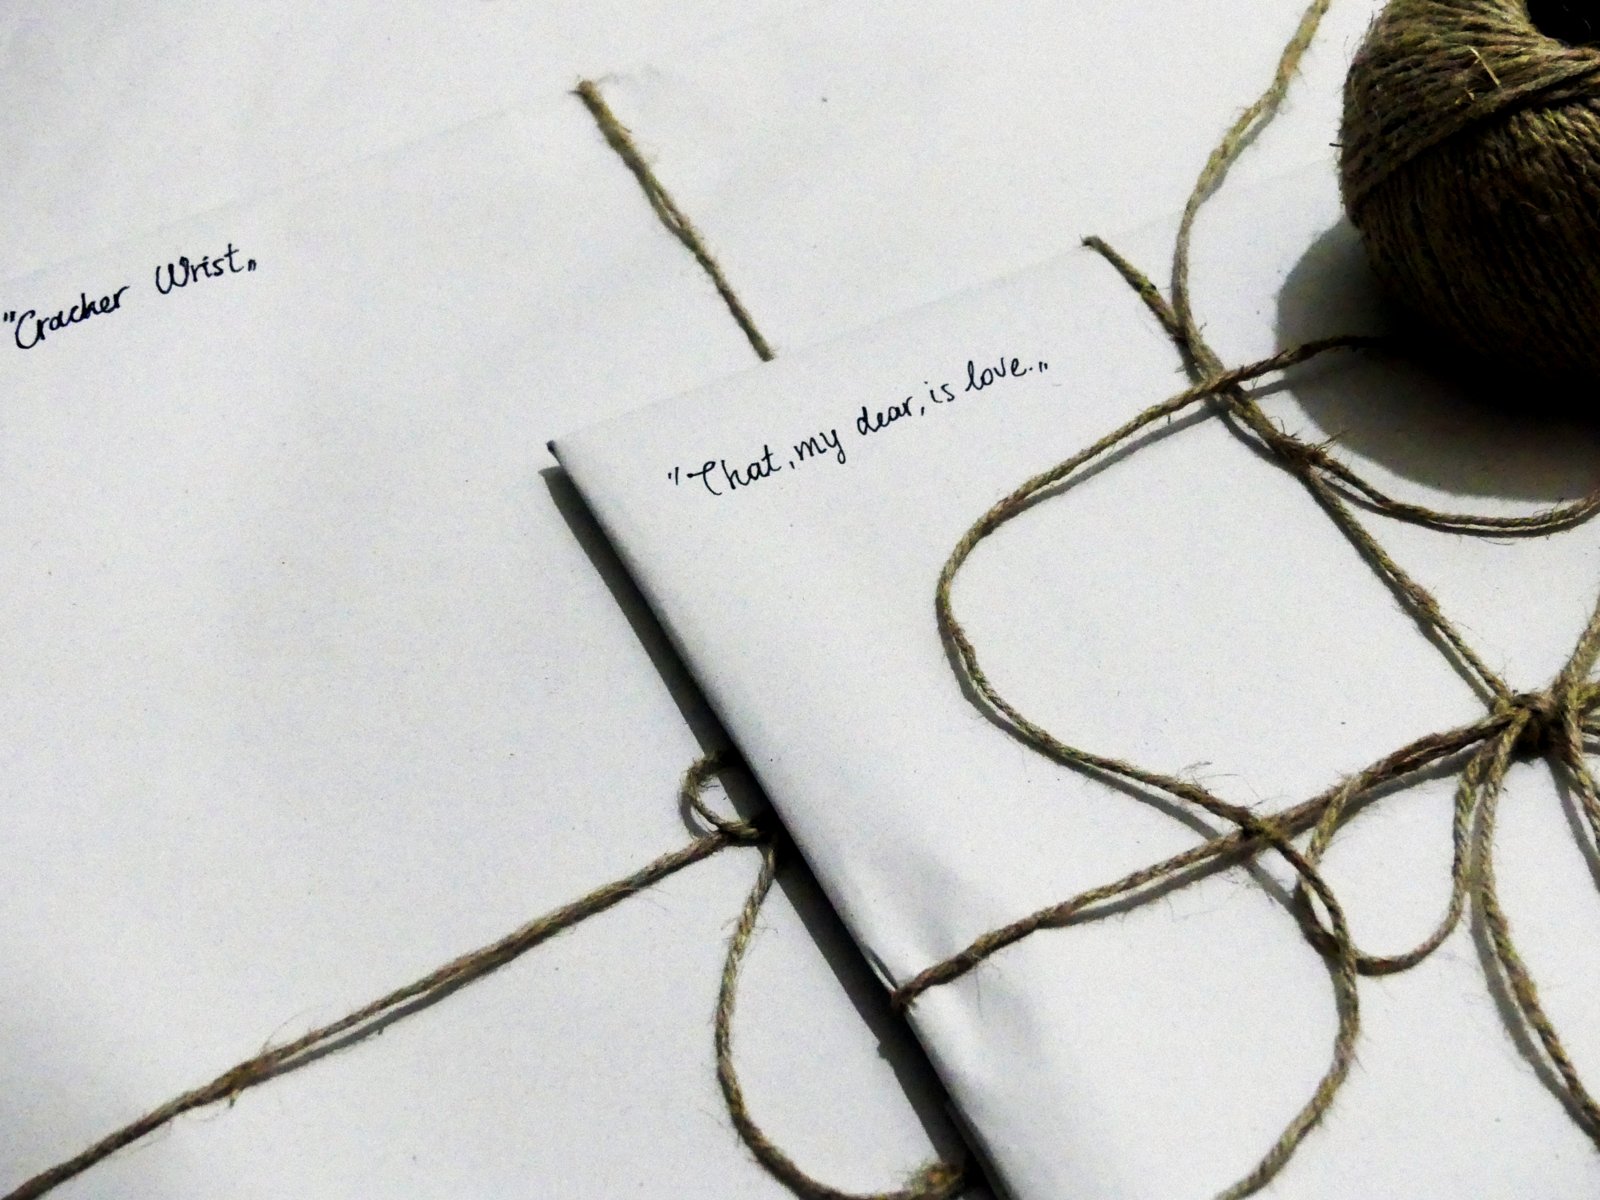 "Cracker Wrist„
"That, my dear, is love.„